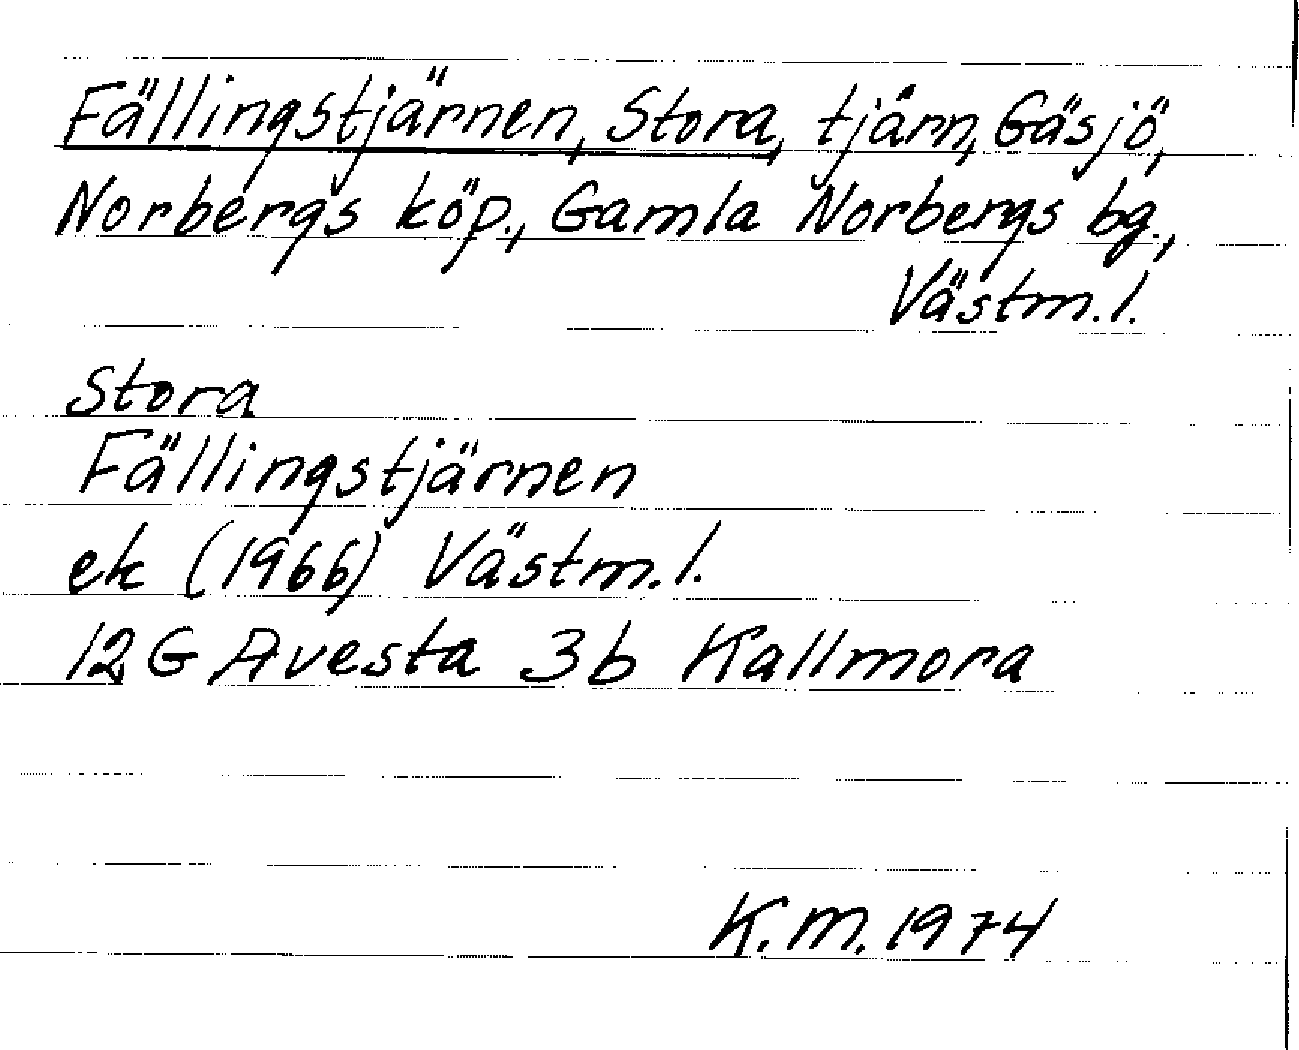 Fällingstjärnen, Stora, tjärn, Gäsjö,
Norbergs köp., Gamla Norbergs bg.,
Västm.l.
Stora
Fällingstjärnen
ek (1966) Västm.l.
12 G Avesta 3b Kallmora
K.M. 1974